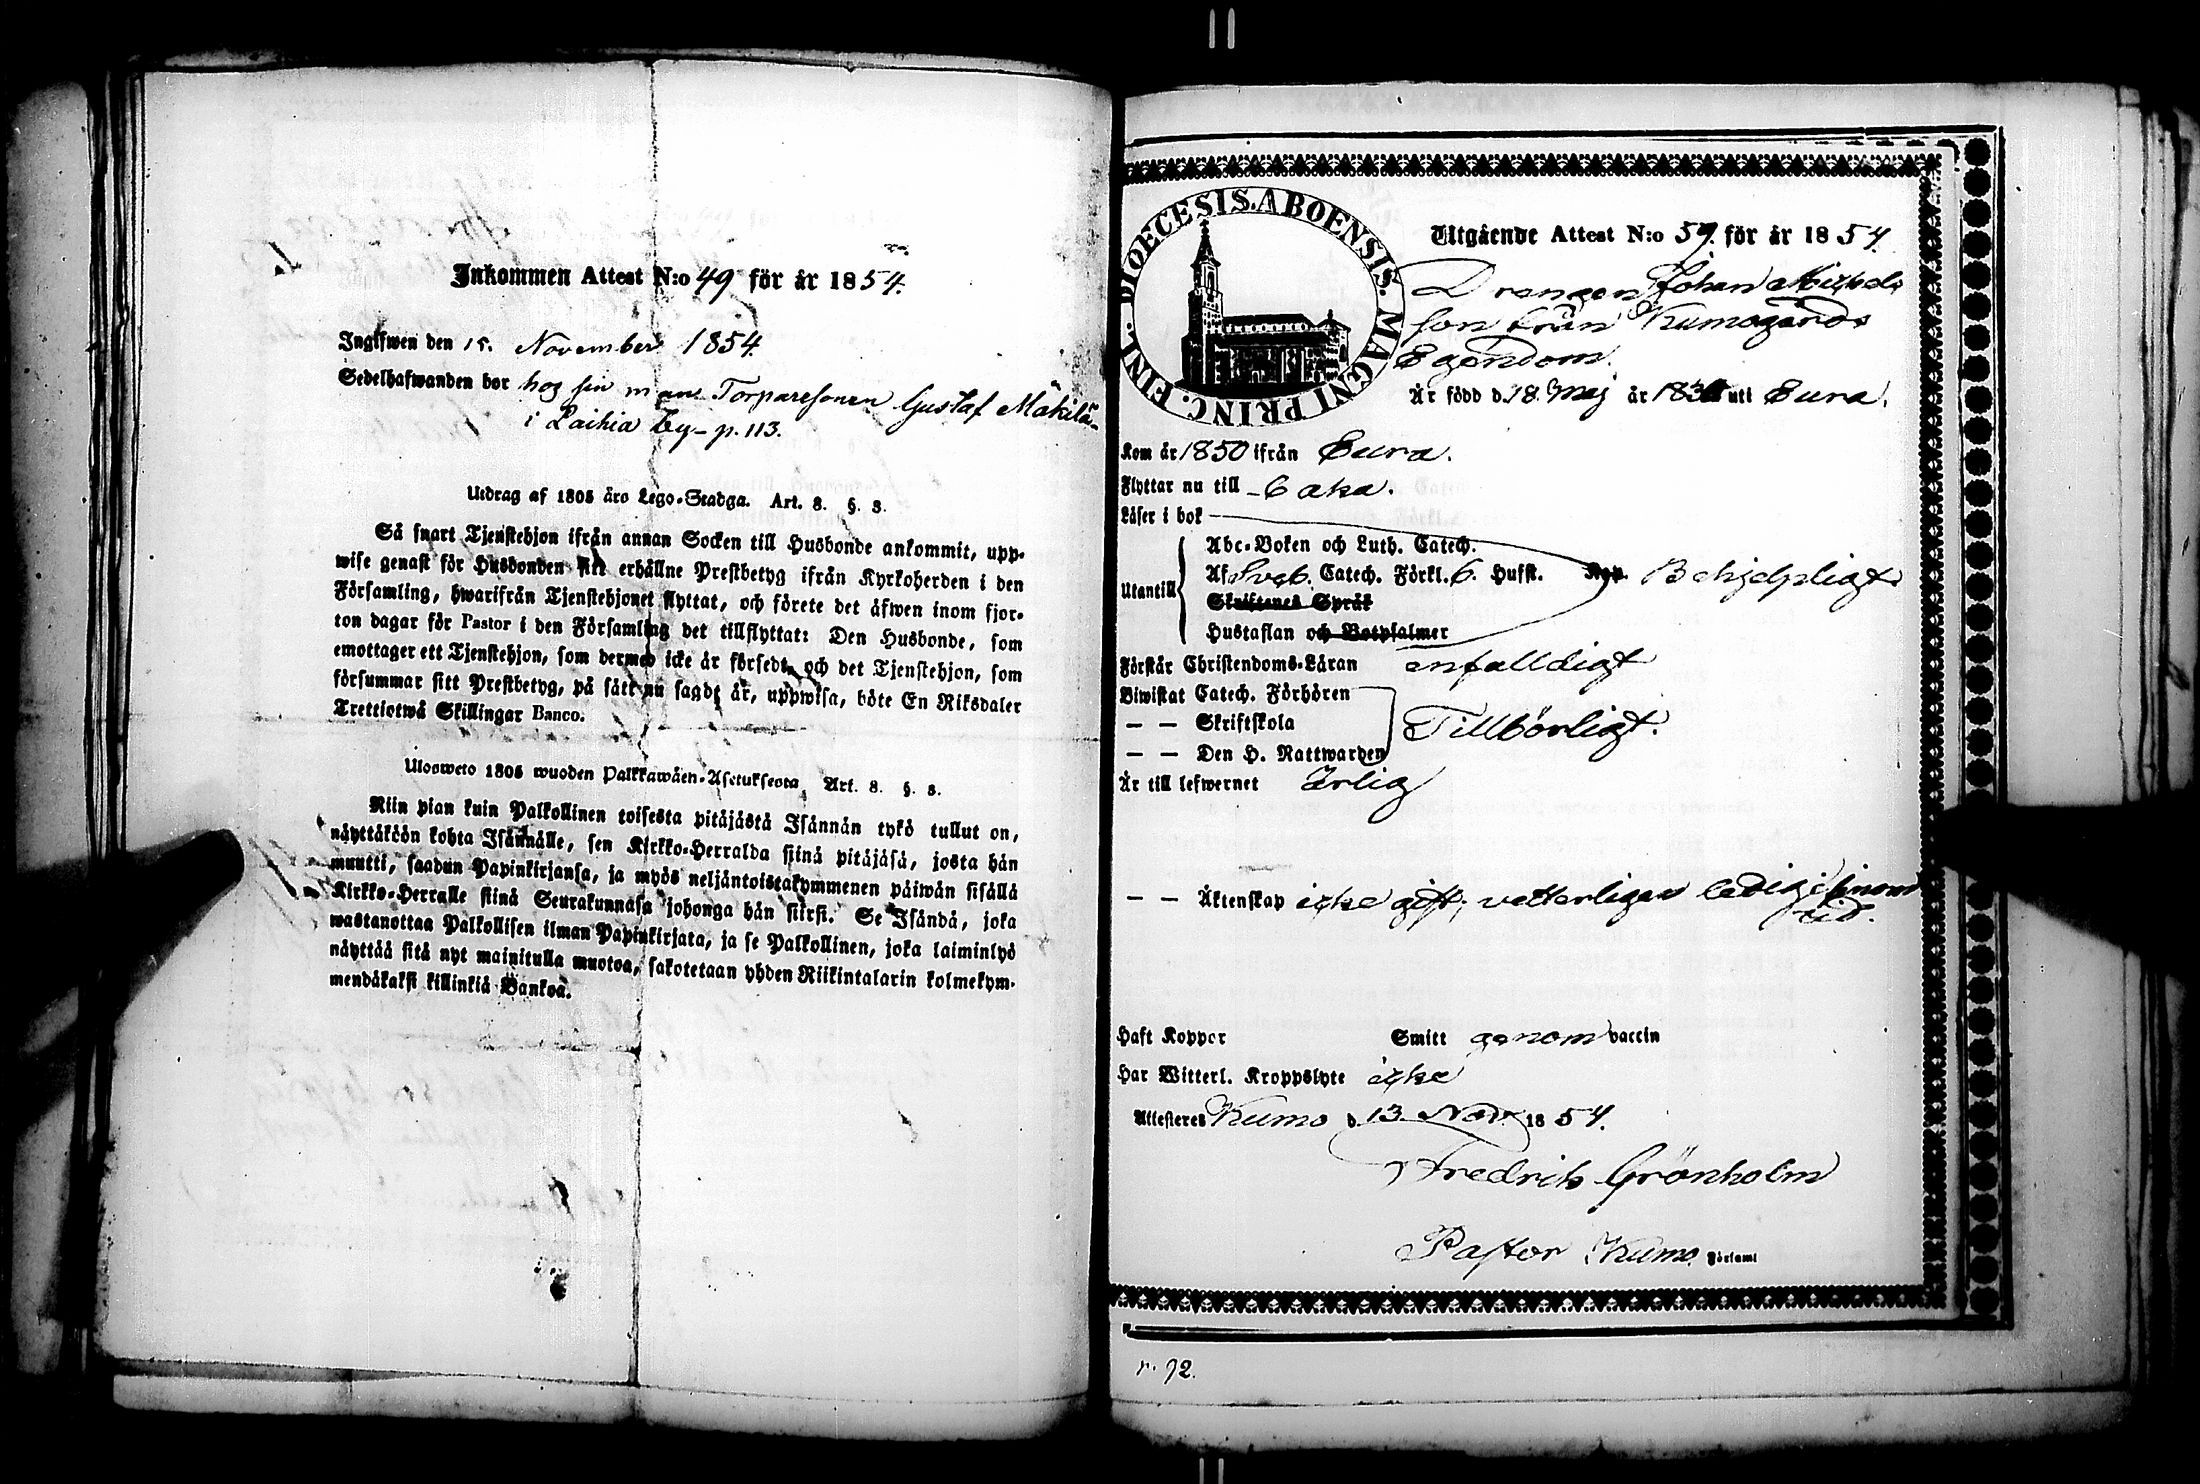 Inkommen Attest N:o 49 för år 1854.
Ingifwen den 15. November 1854.
Sedelhafwanden bor hos sin man Torparesonen Gustaf Mäkilä
i Laihia By - p. 113.
Utdrag af 1805 års Lego-Stadga. Art. 8. §. 8.
Så snart Tjenstehjon ifrån annan Socken till Husbonde ankommit, upp-
wise genast för Husbonden sitt erhållne Prestbetyg ifrån Kyrkoherden i den
Församling, hwarifrån Tjenstehjonet flyttat, och förete det äfwen inom fjor-
ton dagar för Pastor i den Församling det tillflyttat: Den Husbonde, som
emottager ett Tjenstehjon, som dermed icke är försedt, och det Tjenstehjon, som
försummar sitt Prestbetyg, på sätt nu sagdt är, uppwisa, böte En Riksdaler
Trettiotwå Skillingar Banco.
Ulosweto 1805 wuoden Palkkawäen-Asetuksesta Art. 8. §. 8.
Niin pian kuin Palkollinen toisesta pitäjästä Isännän tykö tullut on,
näyttäköön kohta Isännälle, sen Kirkko-Herralda siinä pitäjäsä, josta hän
muutti, saadun Papinkirjansa, ja myös neljäntoistakymmenen päiwän sisällä
Kirkko-Herralle siinä Seurakunnasa johonga hän siirsi. Se Isändä, joka
wastanottaa Palkollisen ilman Papinkirjata, ja se Palkollinen, joka laiminlyö
näyttää sitä nyt mainitulla muotoa, sakotetaan yhden Riikintalarin kolmekym-
mendäkaksi killinkiä Bankoa.
DIOECESIS. ABOENSIS. MAGNI PRINC. FINL.
Utgående Attest N:o 59. för år 1854.
Drängen Johan Michels
son från Kumogårds
Egendom.
Är född d. 18. Maj år 183 uti Eura.
Kom år 1850 ifrån Eura.
Flyttar nu till
Läser i bok
Utantill
Abc-Boken och Luth. Catech.
Af Sveb. Catech. Förkl. 6. Hufst. Kap. Behjelpligt
Skriftenes Språk
Hustaflan och Botpsalmer
Förstår Christendoms-Läran enfalldigt
Biwistat Catech. Förhören
— — Skriftskola
Tillbörligt.
— — Den H. Nattwarden
Är till lefwernet Ärlig
— — Äktenskap icke gift; vetterligen ledig i sinom
tid.
Haft Koppor Smitt genom vaccin
Har Witterl. Kroppslyte icke
Attesteres Kumo d. 13 Nov. 1854.
Fredrik Grönholm
Pastor Kumo Församl
p. 72.